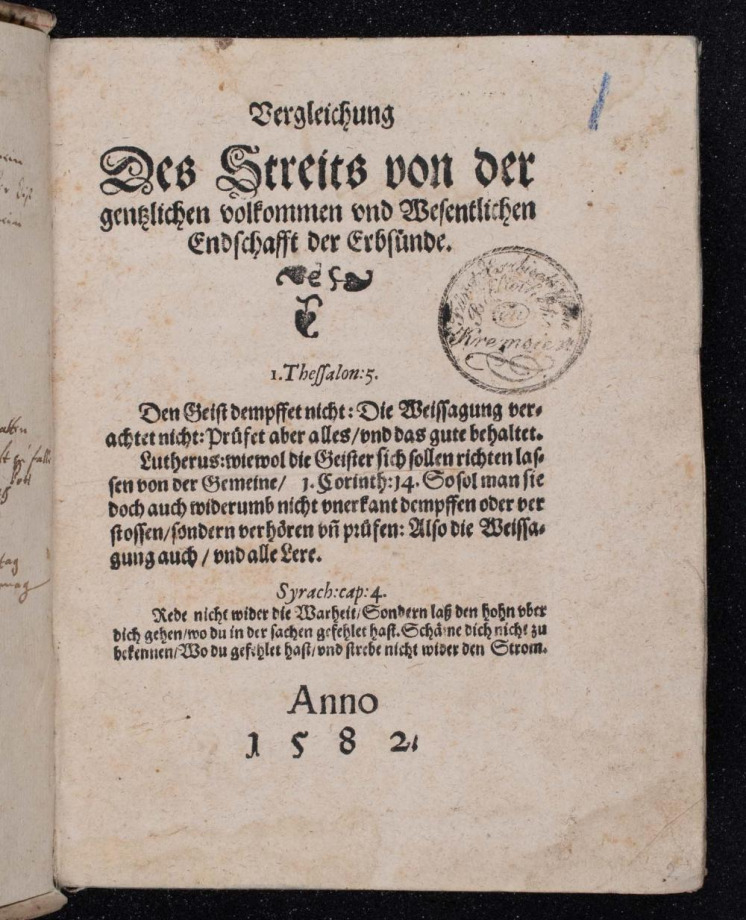 Vergleichung
Des Streits von der
gentzlichen volkommen vnd Wesentlichen
Endschafft der Erbsünde.
1. Thessalon: 5.
Den Geist dempffet nicht: Die Weissagung ver=
achtet nicht: Prüfet aber alles/vnd das gute behaltet.
Lutherus: wiewol die Geister sich sollen richten las=
sen von der Gemeine/ 1. Corinth: 14. So sol man sie
doch auch widerumb nicht vnerkant dempffen oder ver
stossen/sondern verhören vñ prüfen: Also die Weissa=
gung auch / vnd alle Lere.
Syrach: cap: 4.
Rede nicht wider die Warheit/Sondern laß den hohn vber
dich gehen/wo du in der sachen gefehlet hast. Schäme dich nicht zu
bekennen/Wo du gefehlet hast/vnd strebe nicht wider den Strom.
Anno
1582.
in
Kremsier